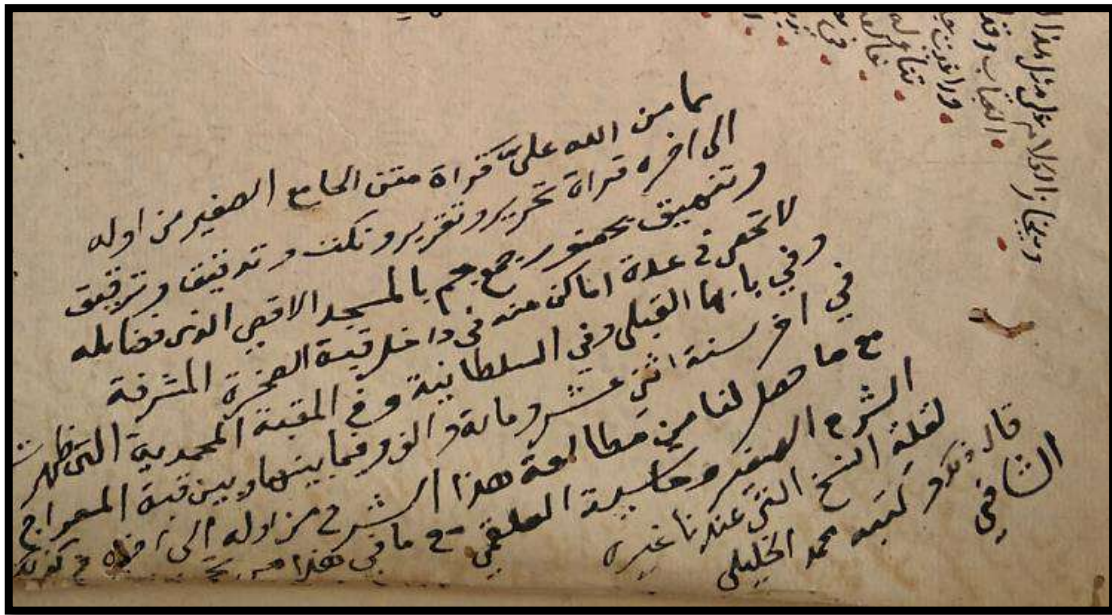 مما من الله عليّ قراة متن الجامع الصغير من اوله
الى اخره قراة تحرير وتقرير ونكت وتدقيق وترقيق
وتنميق بحضور جمع جم بالمسجد الاقصى الذى فضايله
لا تحصى في عدة اماكن منه في داخل قبة الصخرة المشرفة
وفي بابها القبلي وفي السلطانية وفي القبة المحمدية التي ظهرت
في اخر سنة اثنى عشر وماية والف وفيما بينها وبين قبة المعراج
مع ما حصل لنا من مطالعة هذا الشرح من اوله الى اخره مع كونه
الشرح الصغير وحاشية العلقمي مع ما في هذا من
لقلة النسخ التي عندنا غيره
قال ذلك وكتبه محمد الخليلي
الشافعي